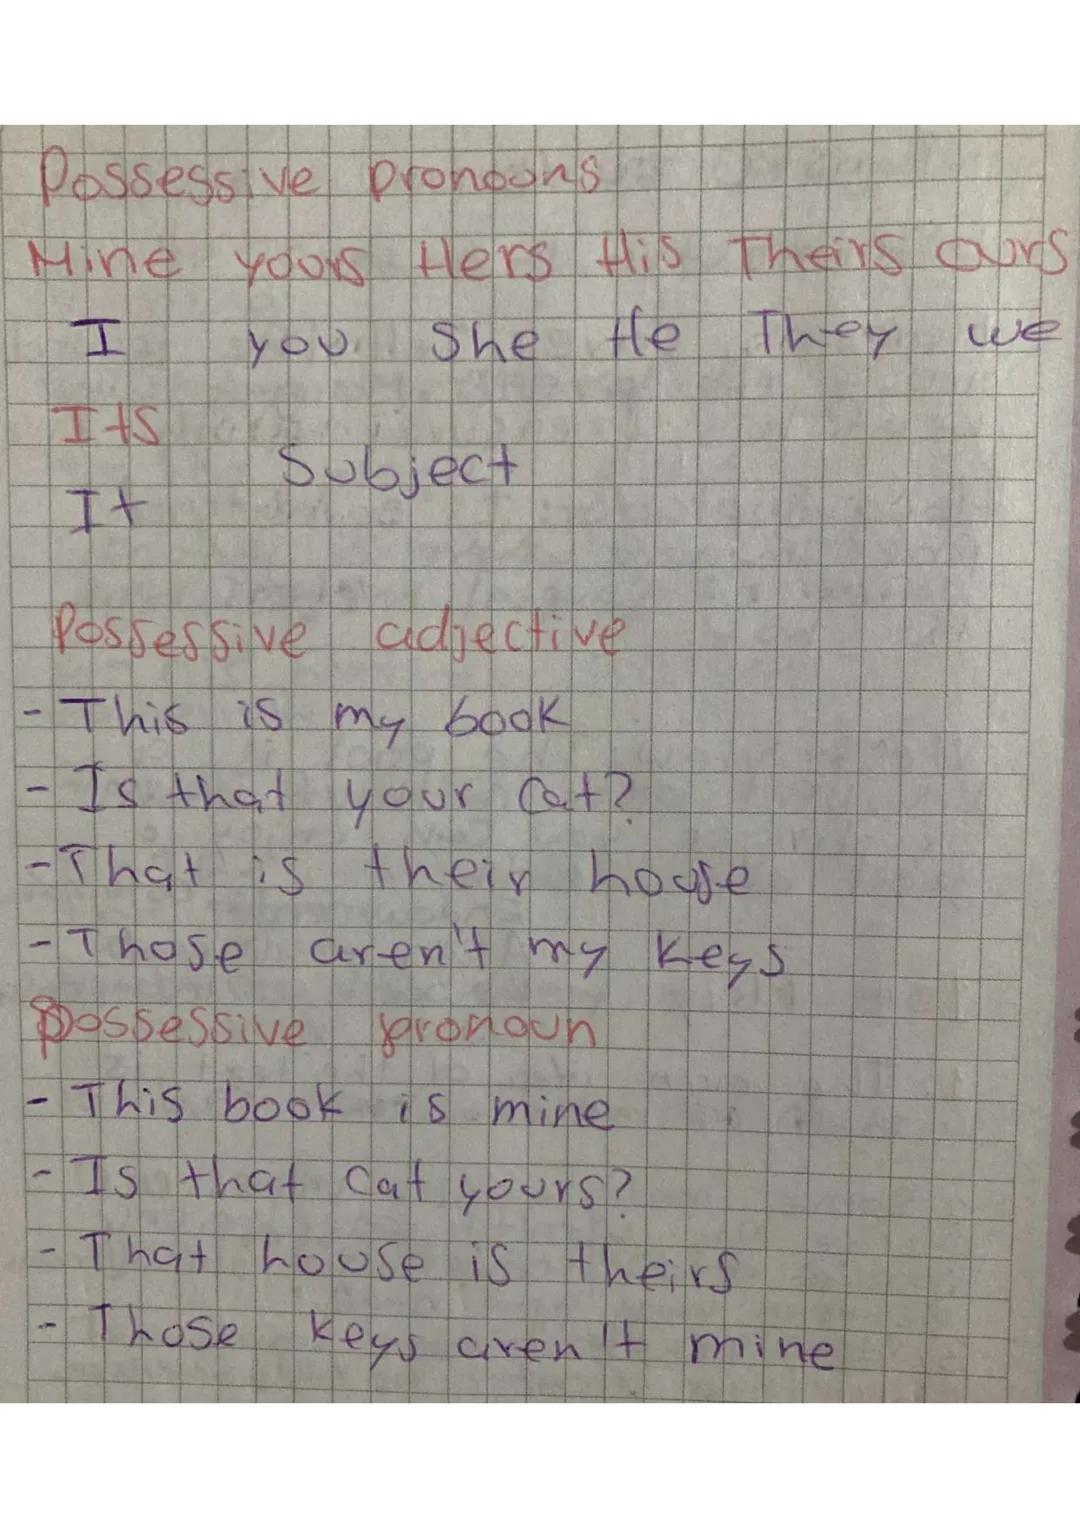 Possessive pronouns
Mine yours Hers His Theirs Ours
I you She He They we
Its
Subject
It
Possessive adjective
- This is my book
- Is that your cat?
- That is their house
- Those aren't my keys
Possessive pronoun
- This book is mine
- Is that cat yours?
- That house is theirs
- Those keys aren't mine